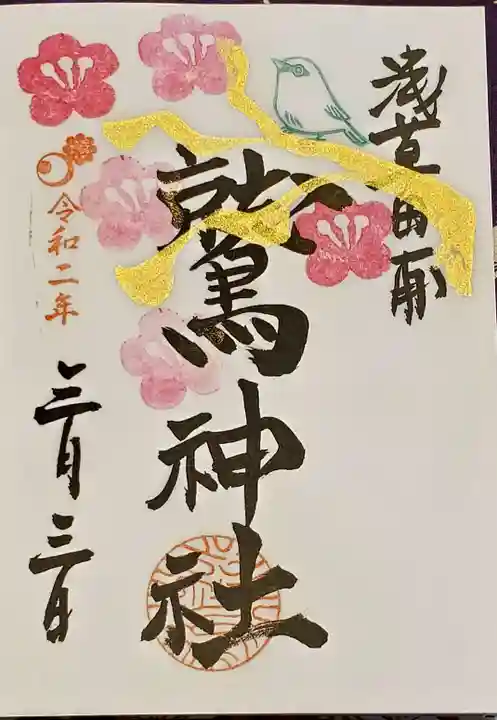 浅草田甫
鷲神社
令和二年
三月三日